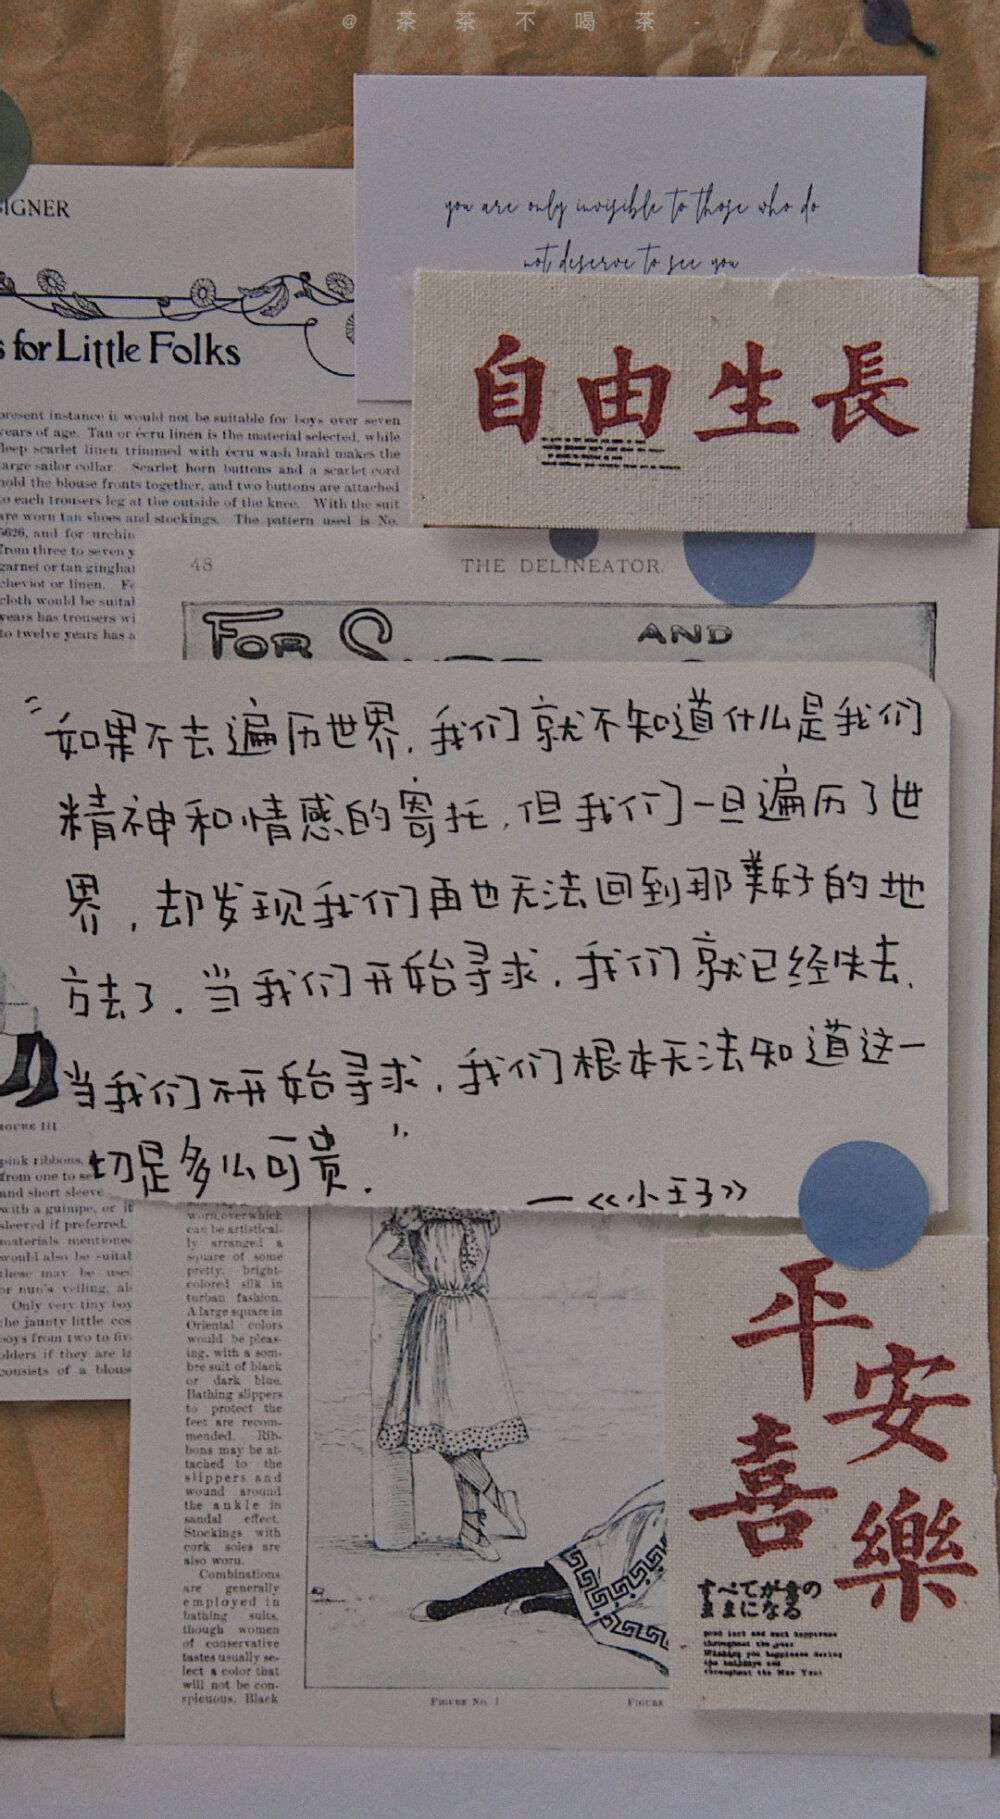 @茶茶不喝茶-
you are only invisible to those who do
not deserve to see you
自由生長
IGNER
for Little Folks
present instance it would not be suitable for boys over seven
years of age. Tan or écru linen is the material selected, while
deep scarlet linen trimmed with écru wash braid makes the
large sailor collar. Scarlet horn buttons and a scarlet cord
hold the blouse fronts together, and two buttons are attached
to each trousers leg at the outside of the knee. With the suit
are worn tan shoes and stockings. The pattern used is No.
5626, and for urchin
from three to seven y
garnet or tan gingha
cheviot or linen.
cloth would be suita
years has trousers wi
to twelve years has a
48
THE DELINEATOR.
FOR
AND
"如果不去遍历世界,我们就不知道什么是我们
精神和情感的寄托,但我们一旦遍历了世
界,却发现我们再也无法回到那美好的地
方去了.当我们开始寻求,我们就已经失去,
当我们不开始寻求,我们根本无法知道这一
切是多么可贵."
—《小王子》
FIGURE III
pink ribbons.
from one to se
and short sleeve
with a guimpe, or if
sleeved if preferred.
materials mentione
would also be suital
these may be used
or nun's veiling, al
Only very tiny boy
the jaunty little cos
boys from two to fiv
olders if they are la
consists of a blous
worn, over which
can be artistical-
ly arranged a
square of some
pretty, bright-
colored silk in
turban fashion.
A large square in
Oriental colors
would be pleas-
ing, with a som-
bre suit of black
or dark blue.
Bathing slippers
to protect the
feet are recom-
mended. Rib-
bons may be at-
tached to the
slippers and
wound around
the ankle in
sandal effect.
Stockings with
cork soles are
also worn.
Combinations
are generally
employed in
bathing suits,
though women
of conservative
tastes usually se-
lect a color that
will not be con-
spicuous. Black
FIGURE No. 1
FIGURE
平安
喜樂
すべてが意の
ままになる
good luck and much happiness
throughout the year
Wishing you happiness during
the holidays and
throughout the New Year